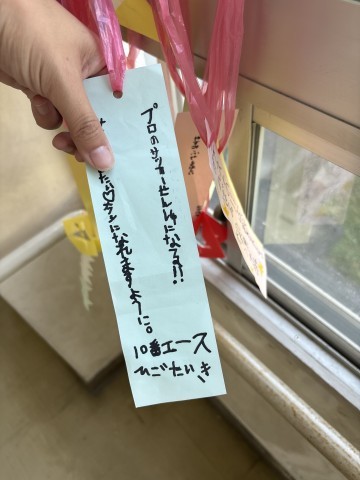 プロのサッカーせんしゅになる!!
たい♡チンになれますように。
10番エース
ひごたいき